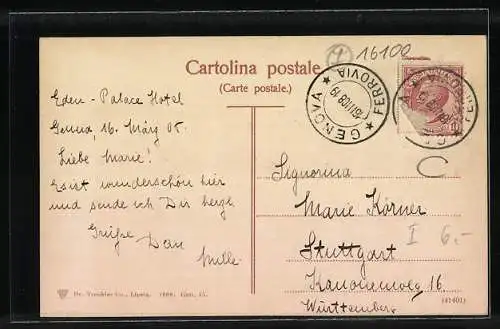 16100
Cartolina postale
(Carte postale.)
GENOVA ★ FERROVIA ★
Eden-Palace Hotel
Genua, 16. März 08.
Liebe Marie!
Es ist wunderschön hier
und sende ich Dir herzl.
Grüße Dan
Mille
Signorina
Marie Körner
Stuttgart
Kanonenweg 16
Württemberg
C
I 6.-
(41401)